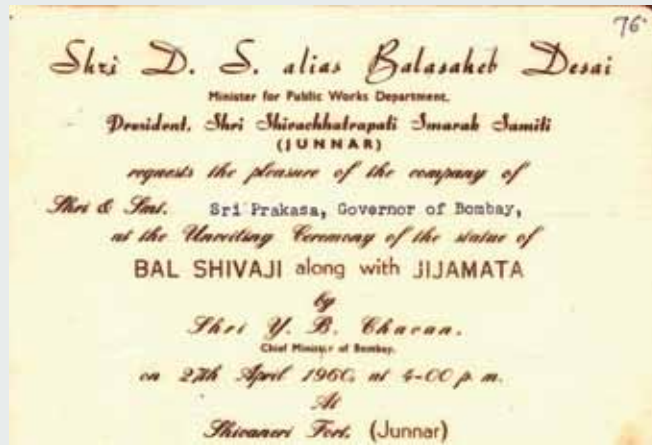 76
Shri D. S. alias Balasaheb Desai
Minister for Public Works Department,
President, Shri Shivachhatrapati Smarak Samiti
(JUNNAR)
requests the pleasure of the company of
Shri & Smt. Sri Prakasa, Governor of Bombay,
at the Unveiling Ceremony of the statue of
BAL SHIVAJI along with JIJAMATA
by
Shri Y. B. Chavan.
Chief Minister of Bombay.
on 27th April 1960, at 4-00 p. m.
At
Shivaneri Fort, (Junnar)